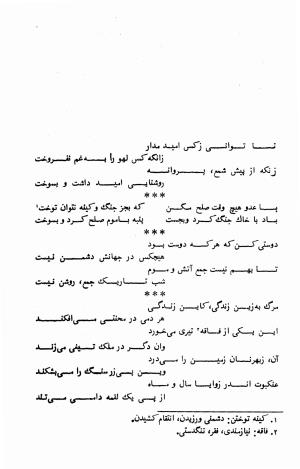 تا توانی زکس امید مدار
زانکه کس لهو را به غم نفروخت
زنکه از پیش شمع، پروانه
روشنایی امید داشت و بسوخت
***
با عدو هیچ وقت صلح مکن
که بجز جنگ و کینه نتوان توخت¹
باد با خاک جنگ کرد و بجست
پنبه با موم صلح کرد و بسوخت
***
دوستی کن که هر که دوست بود
هیچکس در جهانش دشمن نیست
تا بهم نیست جمع آتش و موم
شب تاریک جمع، روشن نیست
***
مرگ به زین زندگی، کاین زندگی
هر دمی در محنتی می‌افکند
این یکی از فاقه² تیری می‌خورد
وان دگر در ملک تیغی می‌زند
آن، ز بهر نان زمین را می‌درد
وین پی زر سنگ را می‌بشکند
عنکبوت اندر زوایا سال و ماه
از پی یک لقمه دامی می‌تند
۱. کینه توختن: دشمنی ورزیدن، انتقام کشیدن.
۲. فاقه: نیازمندی، فقر، تنگدستی.